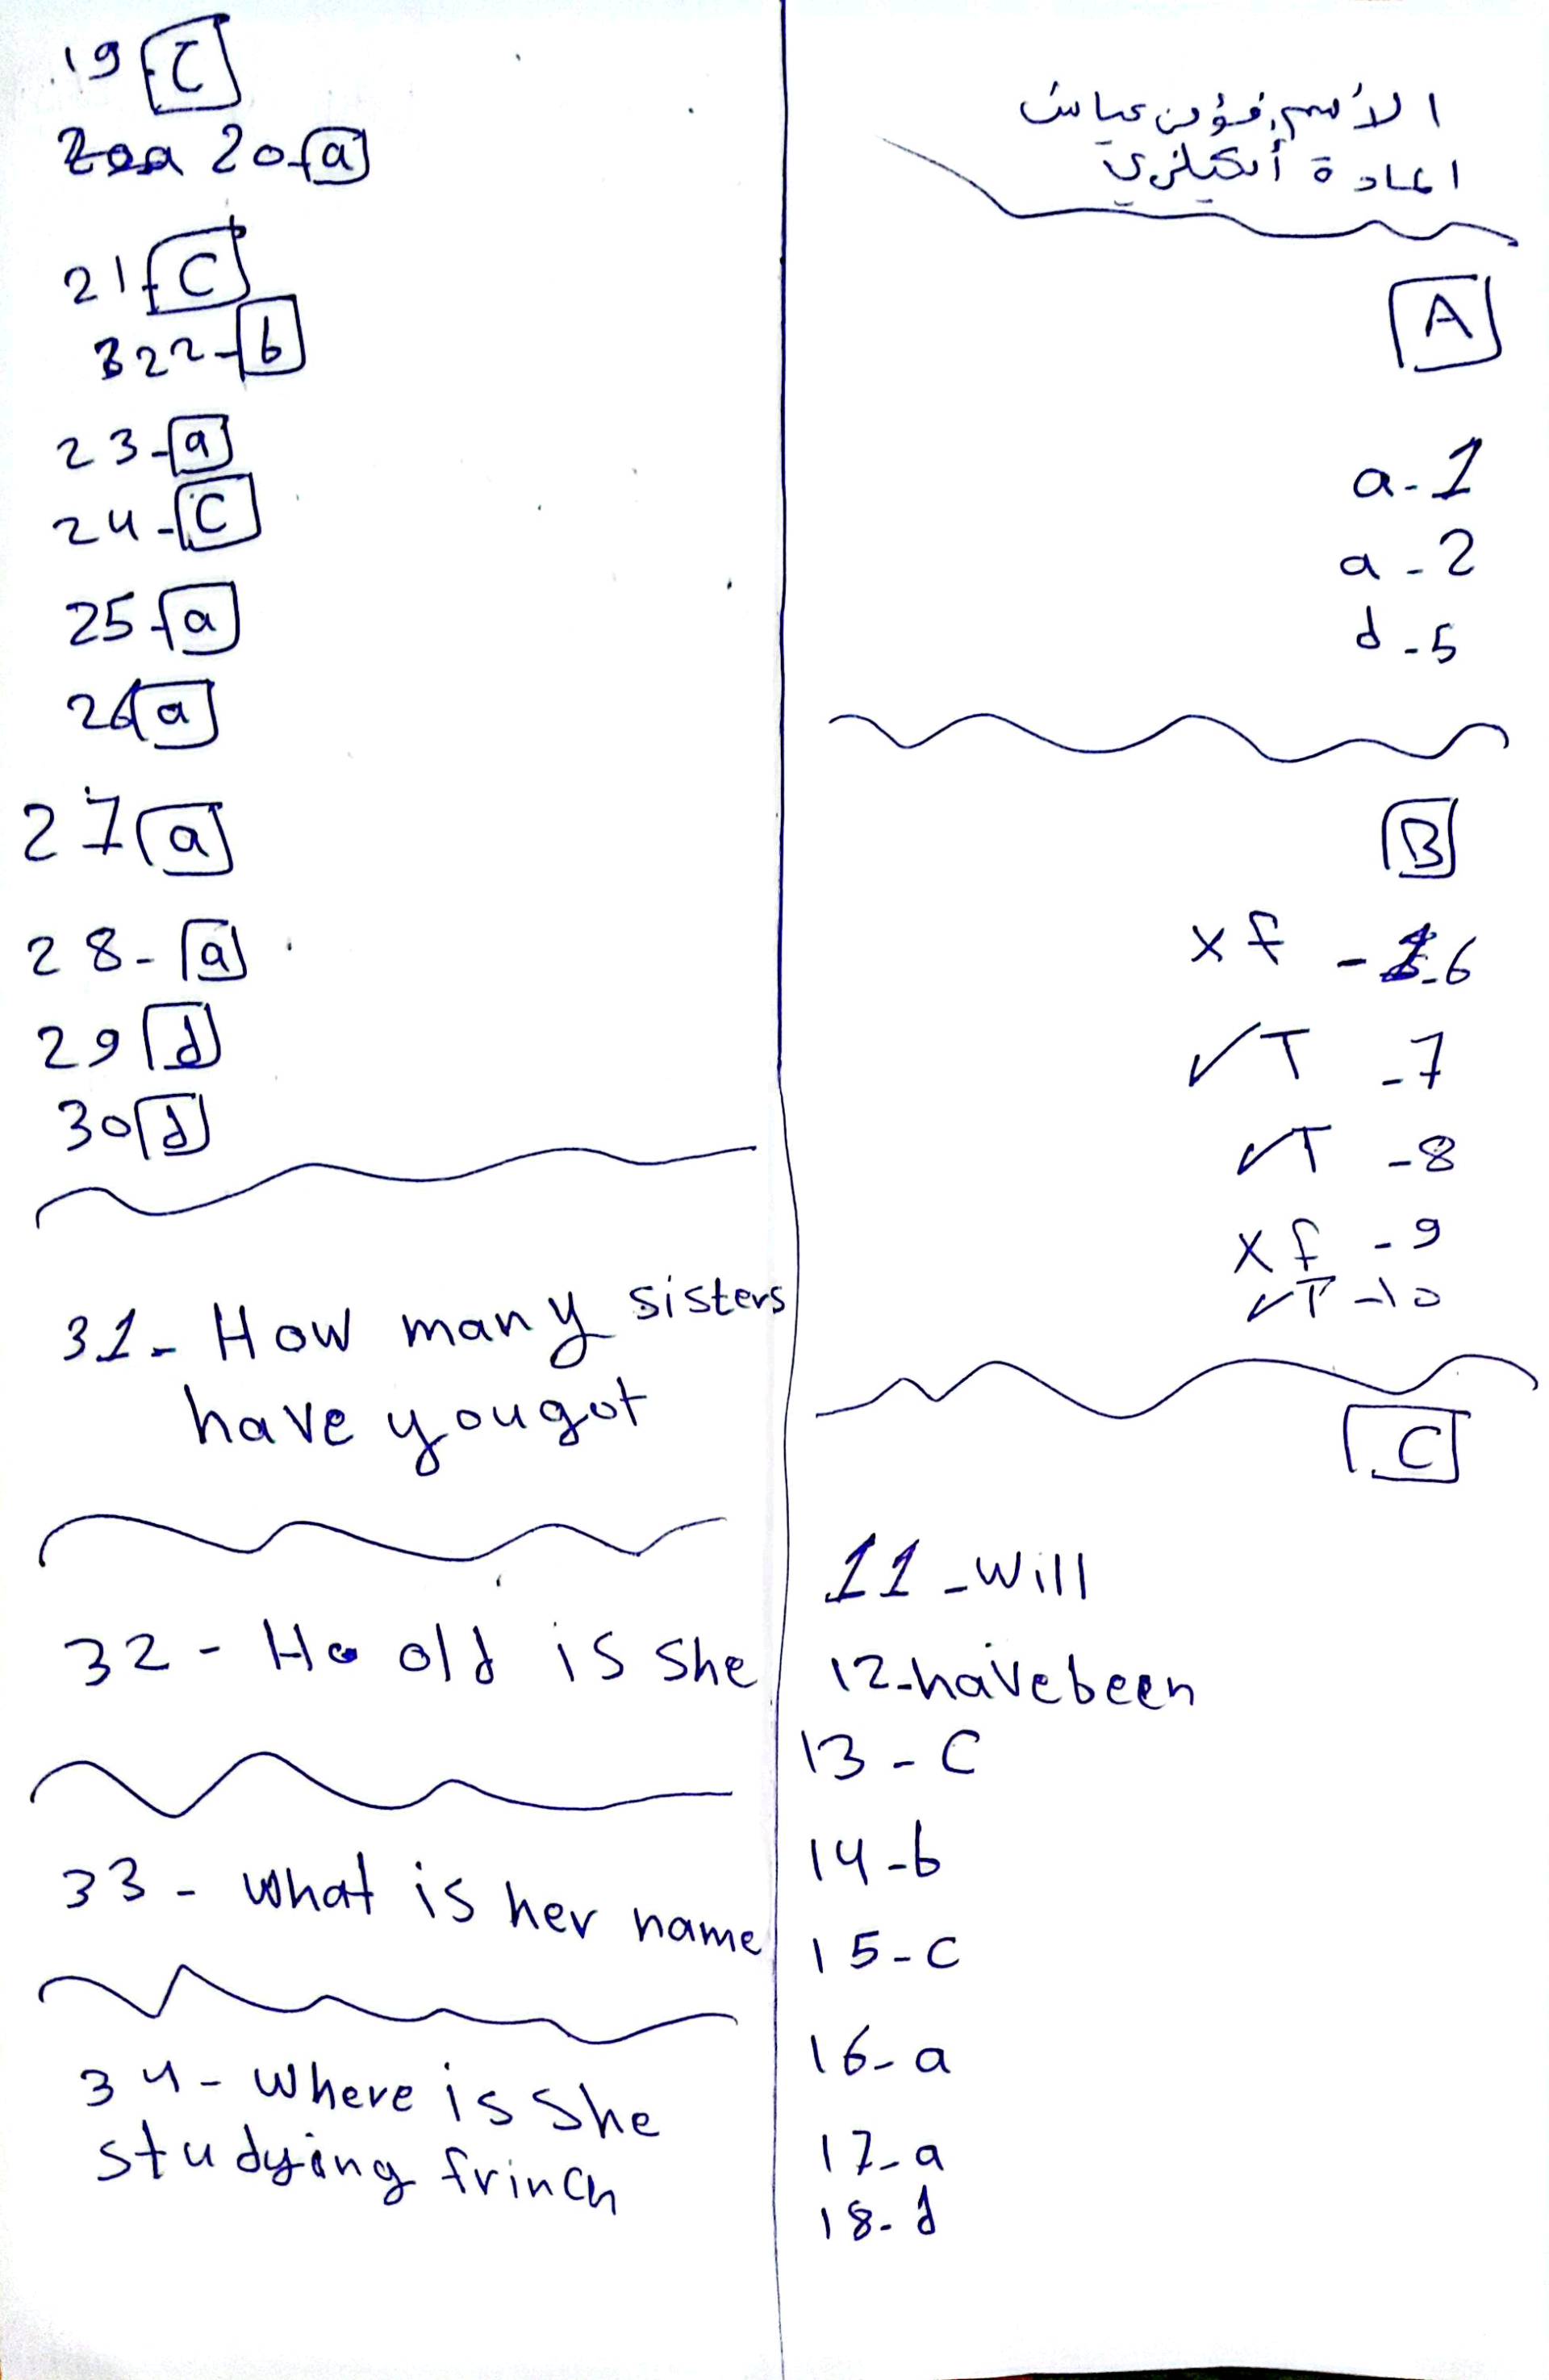 الأسم, فؤمن عباس
المادة أنكيلزي
A
a - 1
a - 2
d - 5
B
x f - 6
✓T - 7
✓T - 8
x f - 9
✓T - 10
C
11 - Will
12 - have been
13 - C
14 - b
15 - C
16 - a
17 - a
18 - d
19 C
20 - a
21 - C
22 - b
23 - a
24 - C
25 - a
26 a
27 a
28 - a
29 d
30 d
31 - How many sisters
have you got
32 - Ho old is she
33 - What is her name
34 - Where is she
studying frinch